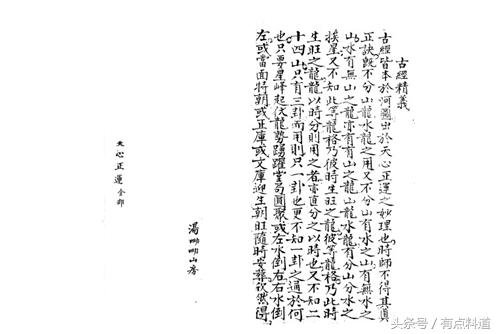 古經精義
古經皆本於河圖出於天心正運之妙理也時師不得其眞
正訣旣不分山龍水龍之用又不分山有水之山有無水之
山水有無山之龍亦有有山之龍山龍水龍有分山分水之
挨星又不知此等龍格乃彼時生旺之龍彼等龍格乃此時
生旺之龍龍以時分則用之者亦直分之以時也又不知二
十四山只有三卦而用則只一卦也更不知一卦之通於何
也只要星峰起伏龍勢踴躍堂局團聚或左水倒右右水倒
左或當面特朝或正庫或文庫迎生朝旺隨時安葬欽然得
湯 山房
天心正運 全部
头条号 / 有点料道